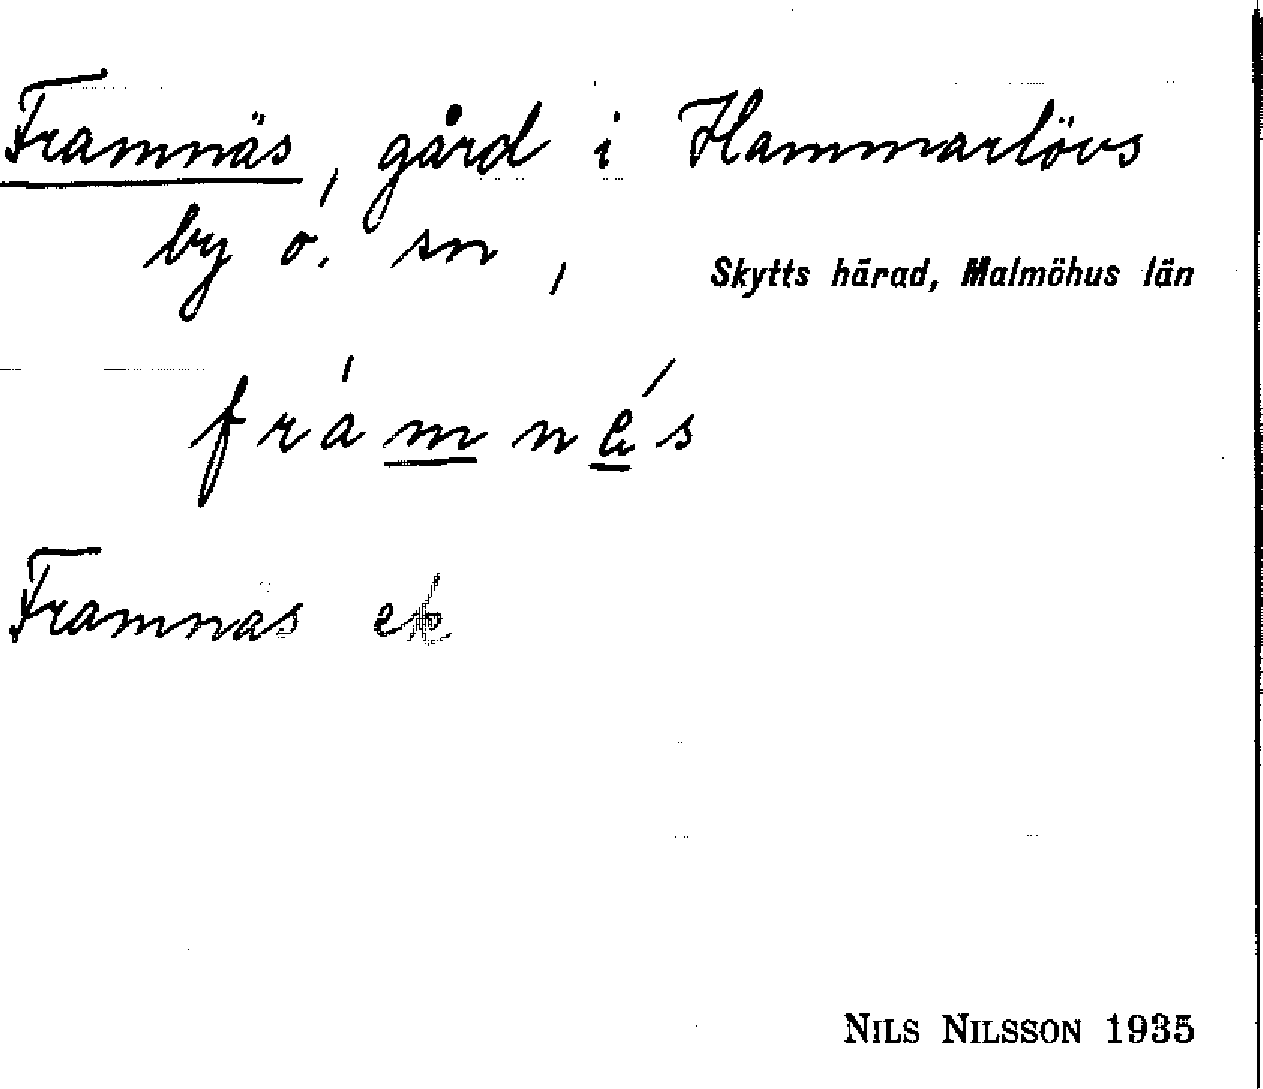 Framnäs, gård i Hammarlövs
by o. sn, Skytts härad, Malmöhus län
framnés
Framnäs ek.
Nils Nilsson 1935